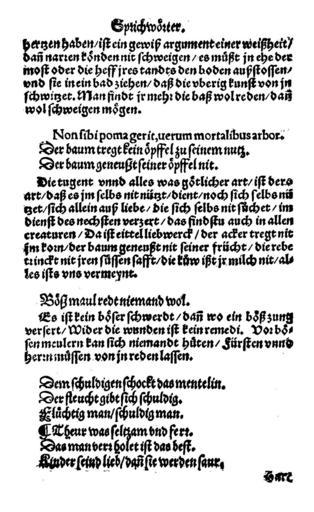 Sprichwörter.
hertzen haben/ ist ein gewiß argument einer weißheit/
dañ narren könden nit schweigen / es müßt jn ehe der
most oder die heff jres tandts den boden außstossen/
vnd sie in ein bad ziehen/ daß die vberig kunst von jn
schwitzet. Man findt jr mehr die baß wol reden/ dañ
wol schweigen mögen.
Non sibi poma gerit, uerum mortalibus arbor.
Der baum tregt kein öpffel zu seinem nutz.
Der baum geneußt seiner öpffel nit.
Die tugent vnnd alles was götlicher art/ ist der s
art/ daß es jm selbs nit nützt/ dient/ noch sich selbs nü
tzet/ sich allein auß liebe/ die sich selbs nit süchet/ im
dienst des nechsten verzert/ das findstu auch in allen
creaturen/ Da ist eittel liebwerck/ der acker tregt nit
jm korn/ der baum geneußt nit seiner frücht/ die rebe
trinckt nit jren süssen safft/ die küw ißt jr milch nit/ al-
les ists vns vermeynt.
Böß maul redt niemand wol.
Es ist kein böser schwerdt/ dañ wo ein böß zung
versert/ Wider die wunden ist kein remedi. Vor bö-
sen meulern kan sich niemandt hüten/ Fürsten vnnd
herrn müssen von jn reden lassen.
Dem schuldigen schockt das mentelin.
Der fleucht gibt sich schuldig.
Flüchtig man/ schuldig man.
¶ Theur was seltzam vnd fert.
Das man verr holet ist das best.
Kinder seind lieb/ dañ sie werden saur.
Hart